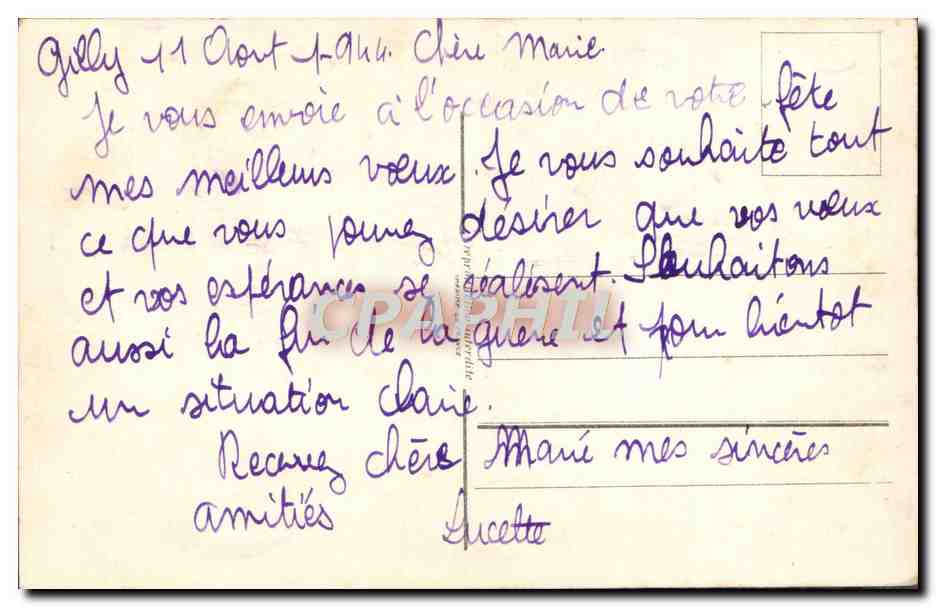 Gilly 11 Août 1944. Chère Marie.
Je vous envoie à l'occasion de votre fête
mes meilleurs vœux. Je vous souhaite tout
ce que vous pouvez désirer que vos vœux
et vos espérances se réalisent. Souhaitons
aussi la fin de la guere et pour bientot
un situation claire.
Recevez chère Marie mes sincères
amitiés Lucette
CPAPHIL
interdite